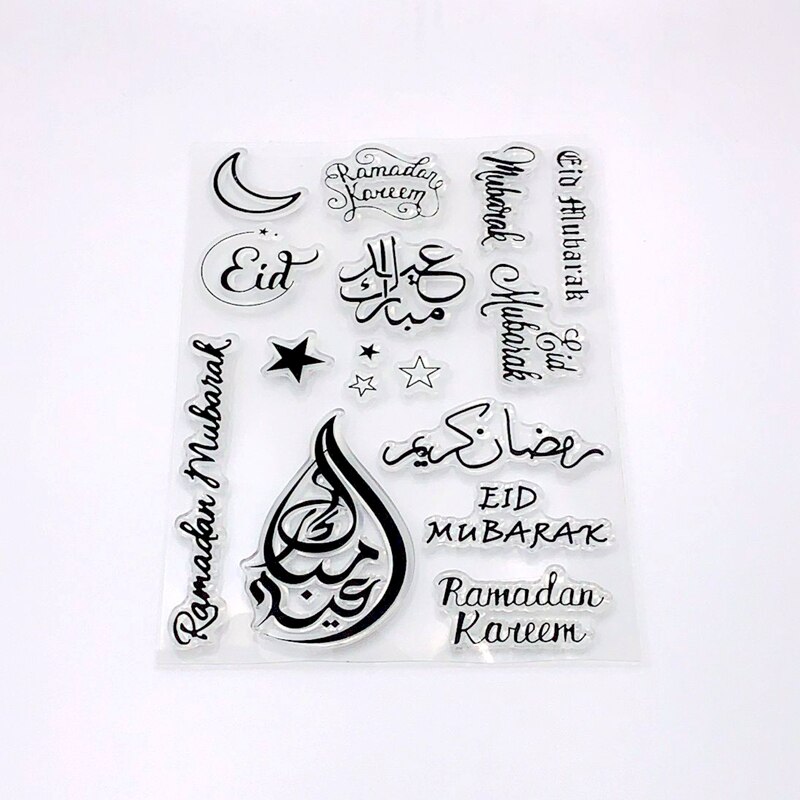 Ramadan
Kareem
Mubarak
Eid Mubarak
Eid
عيد
مبارك
Eid
Mubarak
Ramadan Mubarak
رمضان كريم
EID
MUBARAK
عيد
مبارك
Ramadan
Kareem